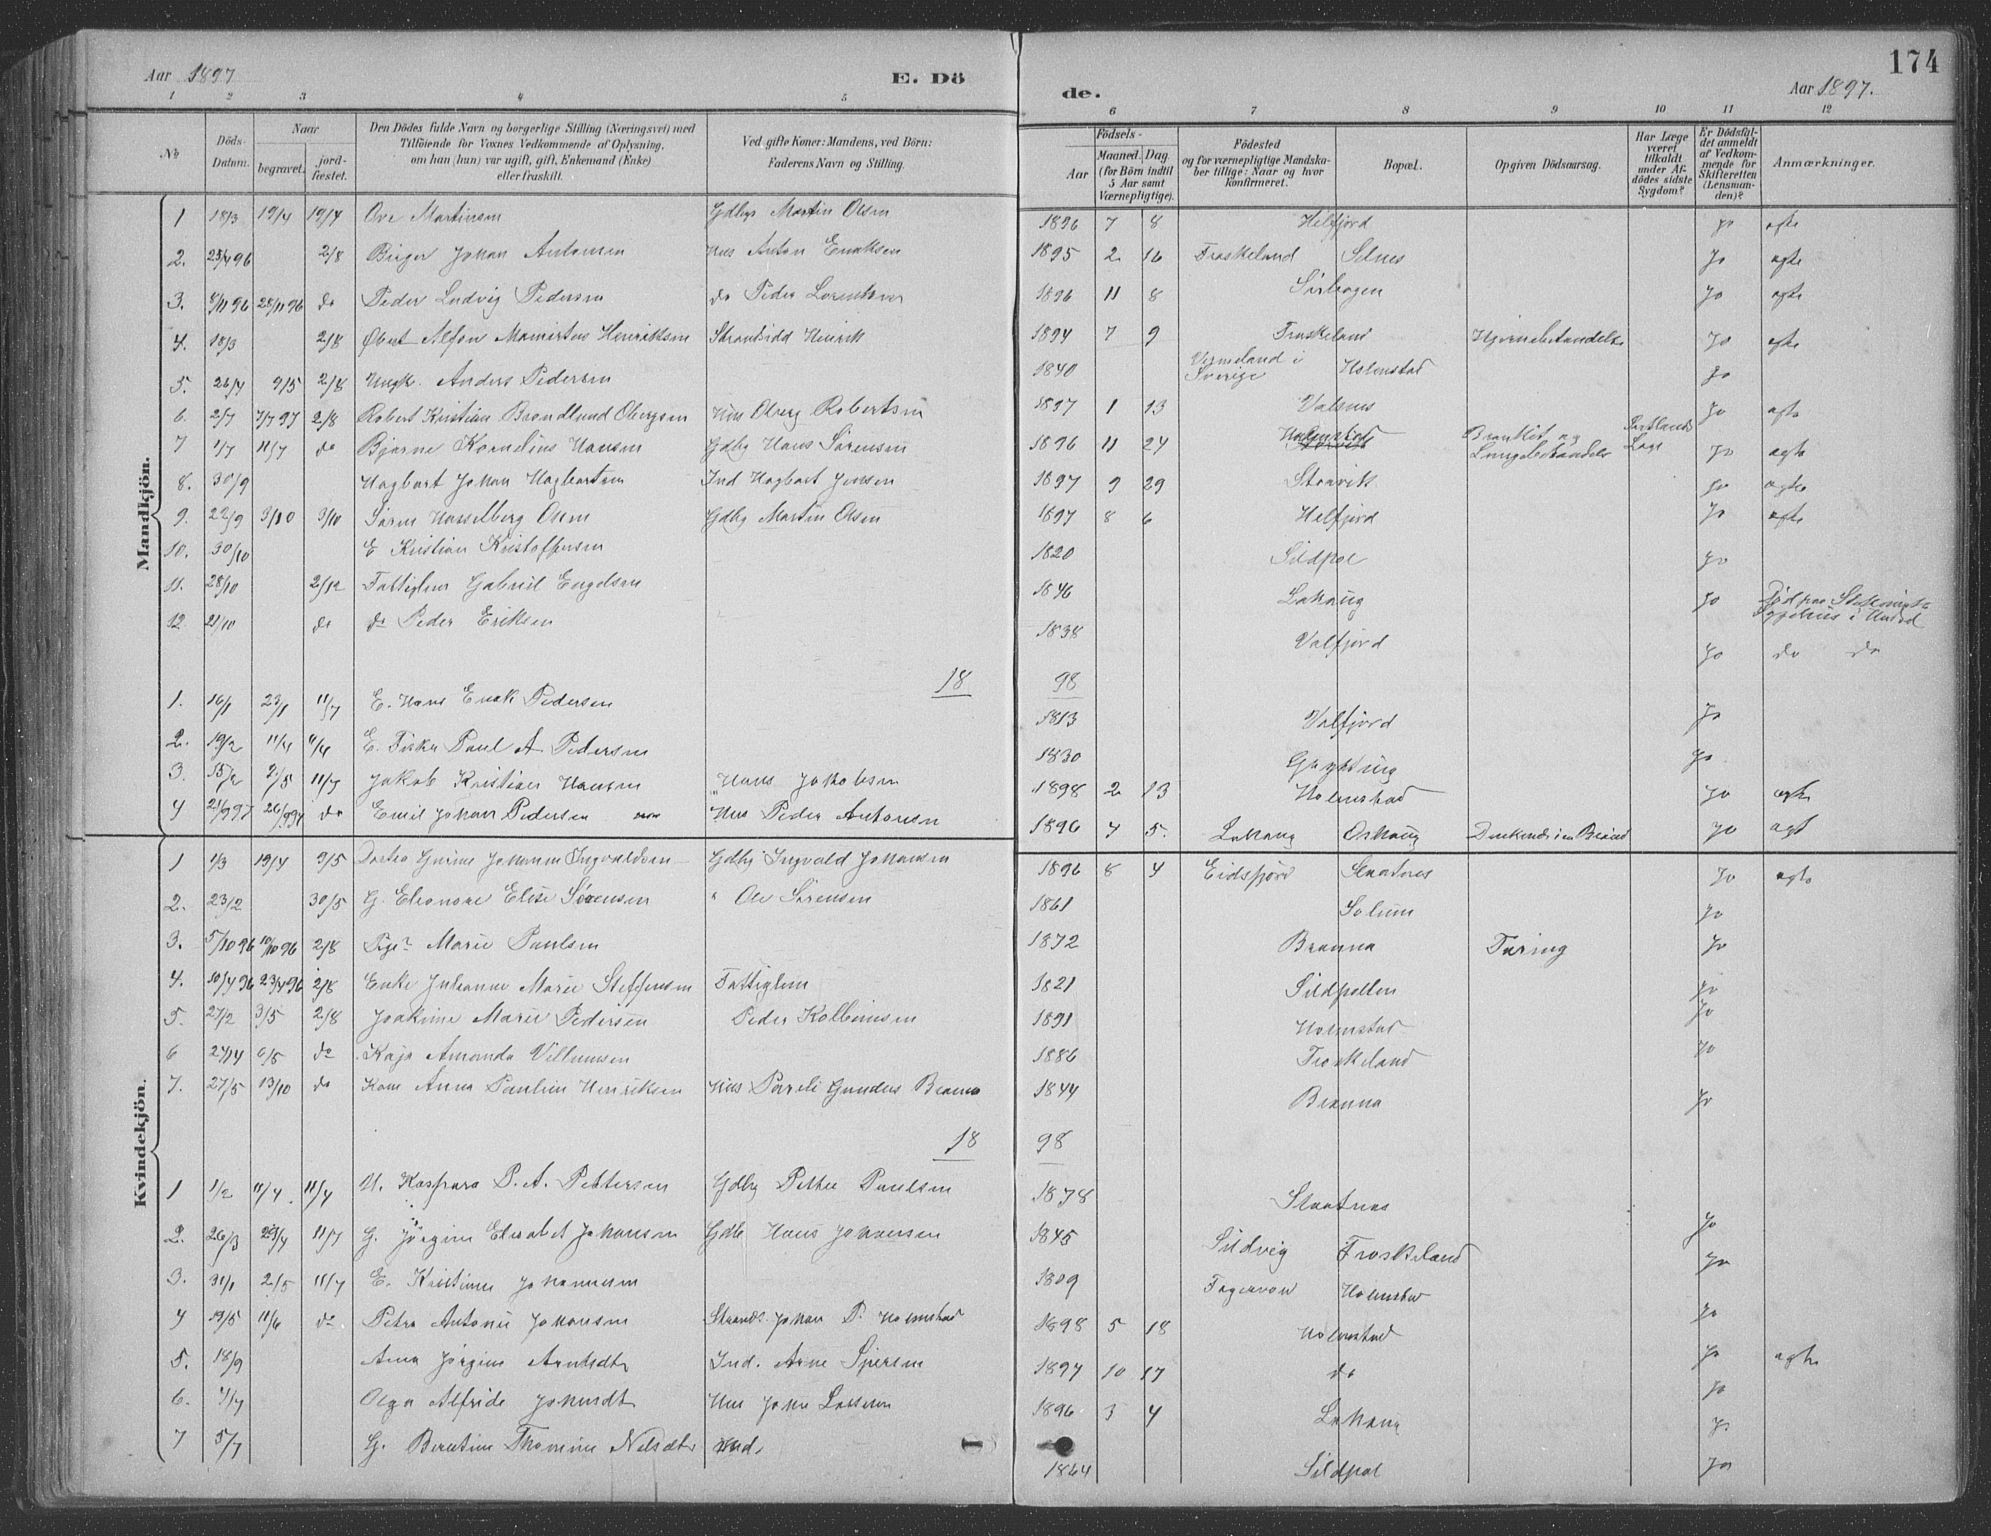 174
Aar 1897
E. Dö
de.
Aar 1897.
1 2 3 4 5 6 7 8 9 10 11 12
No
Döds-Datum.
Naar
begravet.
jord-fæstet.
Den Dödes fulde Navn og borgerlige Stilling (Næringsvei) med Tilföiende for Voxnes Vedkommende af Oplysning. om han (hun) var ugift, gift, Enkemand (Enke) eller fraskilt.
Ved gifte Koner: Mandens, ved Börn: Faderens Navn og Stilling.
Födsels-
Aar
Maaned. Dag (for Børn indtil 5 Aar samt Værnepligtige).
Födested og for værnepligtige Mandska-ber tillige: Naar og hvor konfirmeret.
Bopæl.
Opgiven Dödsaarsag.
Har Læge været tilkaldt under Af-dödes sidste Sygdom?
Er Dödsfal-det anmeldt af Vedkom-mende for Skifteretten (Lensman-den)?
Anmærkninger.
Mandkjön.
1 18/3 19/4 19/4 Ove Martinsen Gdbgr Martin Olsen 1896 7 8 Helfjord Jo ægte
2. 23/4 96 2/8 Birger Johan Antonsen Hus Anton Enoksen 1895 2 16 Froskeland Selnes Jo ægte
3. 8/11 96 28/11 96 do Peder Ludvig Pedersen do Peder Lorentsen 1896 11 8 Jo ægte
4. 18/3 2/8 Alfon Henriksen Strandsidd Henrik 1894 7 9 Froskeland Hjernebetændelse Jo ægte
5. 26/4 9/5 2/8 Ungk. Anders Pedersen 1840 Vermeland i Sverige Holmstad Jo
6. 2/7 7/7 97 2/8 Robert Kristian Brandlund Obergsen Hus Oberg Robertsen 1897 1 13 Valsnes Jo ægte
7 1/7 11/7 do Bjarne Kornelius Hansen Gdbg Hans Sörensen 1896 11 24 Holmstad Bronkit og Lungebetændelse Læge Jo ægte
8. 30/9 Hagbart Johan Hagbartsen Ind Hagbart Jensen 1897 9 29 Jo ægte
9. 22/9 3/10 3/10 Sören Hasselberg Olsen Gdbg Martin Olsen 1897 8 6 Helfjord Jo ægte
10. 30/10 E Kristian Kristoffersen 1820 Sildpol Jo
11. 28/10 2/12 Fattiglem Gabriel Engelsen 1846 Lahaug Jo
12. 21/10 do do Peder Eriksen 1838 Valfjord Jo do do
18 98
1. 16/1 23/1 11/7 E. Hans Enok Pedersen 1813 Valfjord Jo
2. 19/2 11/4 11/4 E. Fisker Paul A. Pedersen 1830 Jo
3. 15/2 2/5 11/7 Jakob Kristian Hansen Hans Jakobsen 1898 2 13 Holmstad Jo ægte
4 21/9 97 26/9 97 do Emil Johan Pedersen Hus Peder Antonsen 1896 4 5. Lahaug Oshaug Jo ægt
Kvindekjön.
1 1/3 19/4 9/5 Johanna Ingvaldsen Gdbg Ingvald Johansen 1896 8 4 Eidsfjord Slaatnes Jo ægte
2. 23/2 30/5 G. Eleonore Elise Sörensen " Ole Sörensen 1861 Solum Jo
3. 5/10 96 10/10 96 2/8 Pige Marie Paulsen 1872 Branna Tæring Jo
4. 10/4 96 23/4 96 2/8 Enke Johanne Marie Steffensen Fattiglem 1821 Sildpollen Jo
5. 27/2 3/5 2/8 Joakime Marie Pedersen Peder Kolbensen 1891 Holmstad Jo
6 24/4 6/5 do Kaja Amanda Villumsen 1886 Froskeland Jo
7. 27/5 13/10 do Kone Anna Pauline Henriksen Hus Branna 1844 Branna Jo
18 98
1 1/2 11/4 11/4 U. Kaspara P. A. Pettersen Gdbg Petter Paulsen 1878 Slaatnes Jo
2. 26/3 23/4 11/7 G. Jörgine Elisabet Johansen Gdb Hans Johansen 1845 Sildvig Froskeland Jo
3. 31/1 2/5 11/7 E. Kristine Johannesen 1809 Holmstad Jo
4 19/5 11/6 do Petra Antonie Johansen Strands. Johan P. Holmstad 1898 5 18 Holmstad Jo ægte
5. 18/9 Anna Jörgine Arntsdtr Ind. Arne Sjursen 1897 10 17 do Jo
6. 4/7 Olga Alfride Johnsdtr Hus John Larsen 1896 3 4 Lahaug Jo
7 5/7 G. Berntine Thomine Nilsdtr Ind. 1864 Sildpol Jo